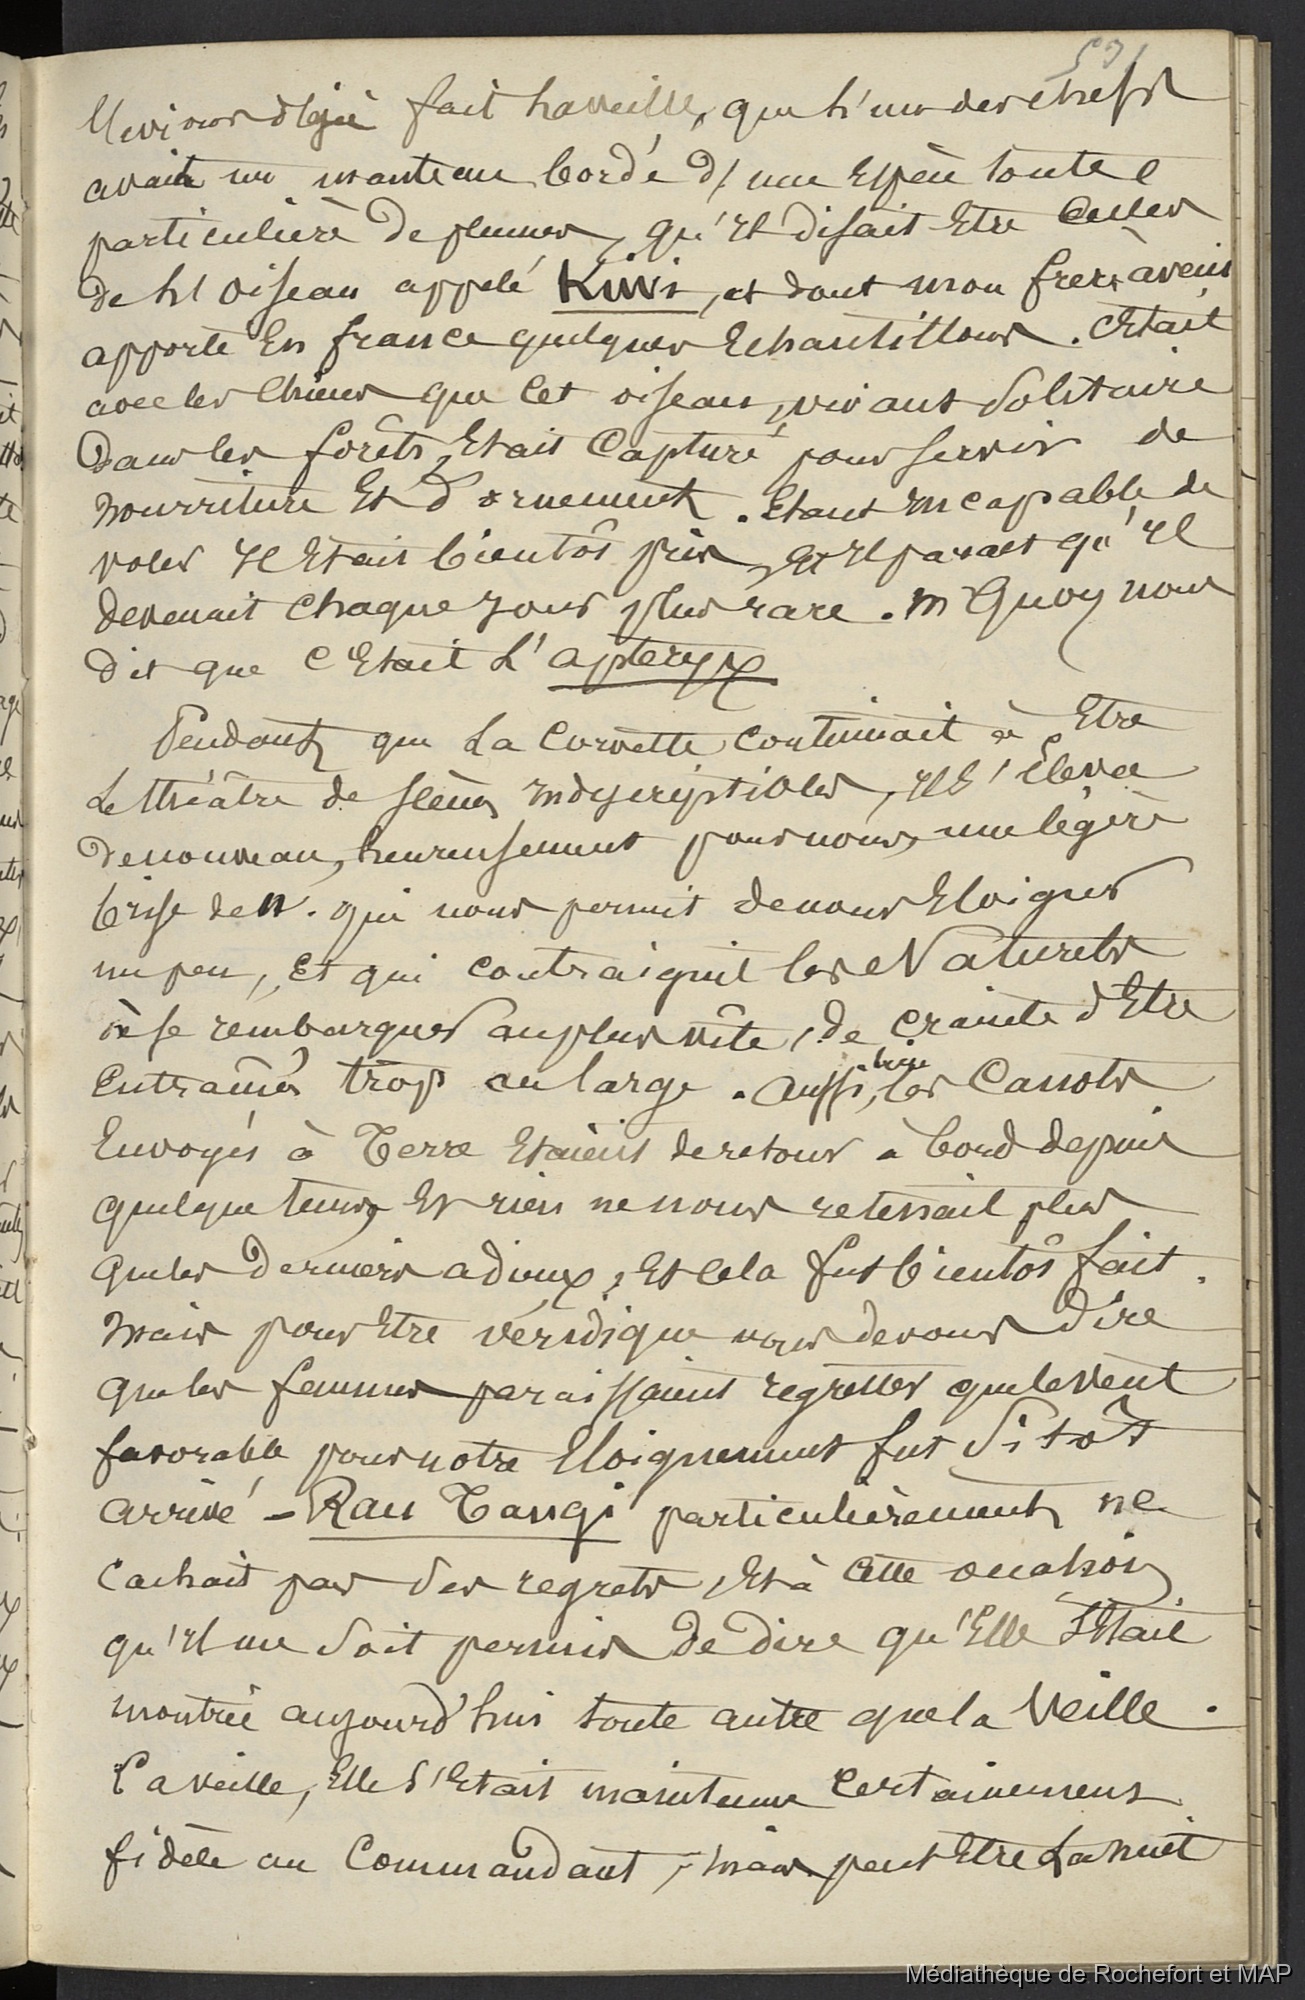 déjà fait la veille, que l'un des chefs
avait un manteau bordé d'une espèce toute
particulière de plumes, qu'il disait être celles
de l'oiseau appelé Kiwi, et dont mon frère avait
apporté en france quelques échantillons. C'était
avec les chiens que cet oiseau, vivant solitaire
dans les forêts, était capturé pour servir de
nourriture et d'ornement. Etant incapable de
voler il était bientôt pris, et il parait qu'il
devenait chaque jour plus rare. M Quoy nous
dit que c'était l'apteryx
Pendant que la corvette continuait à être
le théâtre de scènes indescriptibles, il s'éleva
de nouveau, heureusement pour nous, une légère
brise de N. qui nous permit de nous éloigner
un peu, et qui contraignit les Naturels
à se rembarquer au plus vite, de crainte d'être
entraînés trop au large. Aussi bien, les Canots
envoyés à Terre étaient de retour à bord depuis
quelque tems, et rien ne nous retenait plus
que les derniers adieux, et cela fut bientôt fait.
Mais pour être véridique nous devons dire
que les femmes paraissaient regretter que le vent
favorable pour notre éloignement fut sitôt
arrivé - Rau Tangi particulièrement ne
cachait pas ses regrets, et à cette occasion
qu'il me soit permis de dire qu'elle s'était
montrée aujourd'hui toute autre que la Veille.
La veille, elle s'était maintenue certainement
fidèle au Commandant, mais peut être la nuit
Médiathèque de Rochefort et MAP